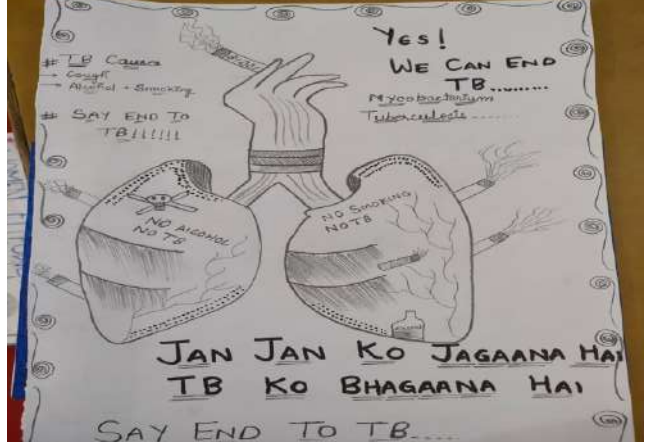 # TB Causes
→ Cough
→ Alcohol + Smoking
# SAY END TO
TB!!!!!!
YES!
WE CAN END
TB.........
Mycobacterium
Tuberculosis.........
NO ALCOHOL
NO TB
NO SMOKING
NO TB
JAN JAN KO JAGAANA HAI
TB KO BHAGAANA HAI
SAY END TO TB....